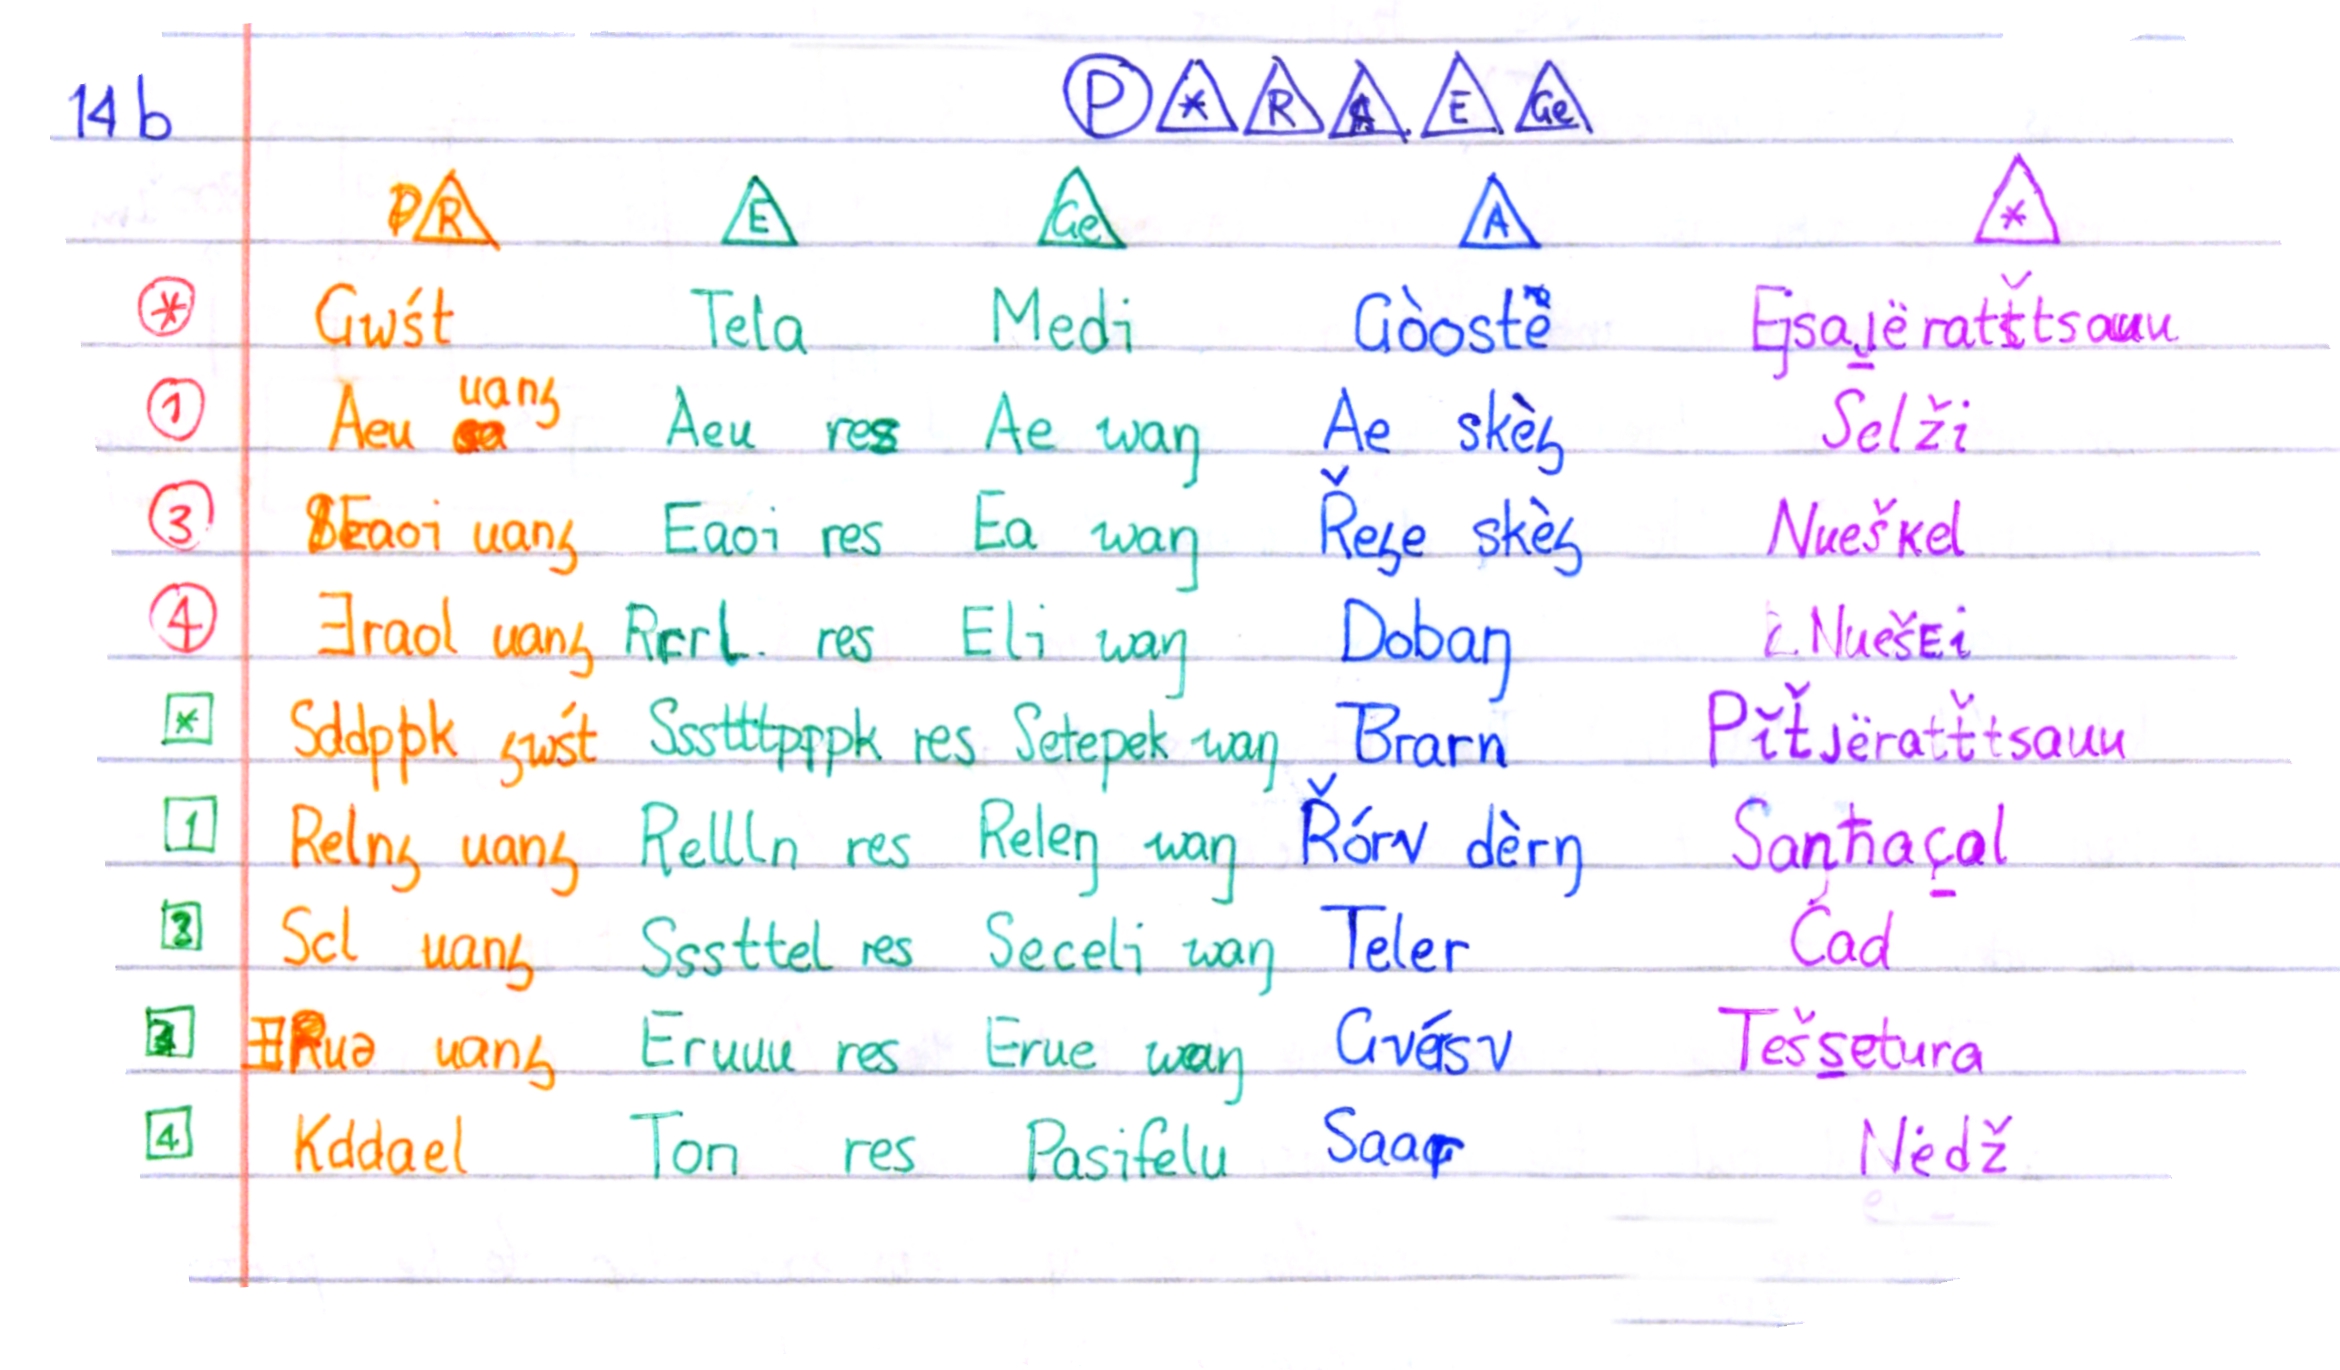 14b P * R A E Ge
R E Ge A *
* Gwśt Tela Medi Gòostë Ejsajëratťtsauu
1 Aeu uanꜧ Aeu res Ae waŋ Ae skèꜧ Selži
3 Eaoi uanꜧ Eaoi res Ea waŋ Řeꜧe skèꜧ Nueškel
4 Ǝraol uanꜧ res Eli waŋ Dobaŋ NuešEi
* Sddppk ꜧwśt Sssttttpppk res Setepek waŋ Brarn Pǐťjëratťtsauu
1 Relnꜧ uanꜧ Rellln res Releŋ waŋ Řórv dèrŋ Sanħaçal
Scl uanꜧ Sssttel res Seceli waŋ Teler Ćad
Ruə uanꜧ Eruuu res Erue waŋ Gvásv Tešsetura
4 Kddael Ton res Pasifelu Saar Nėdž